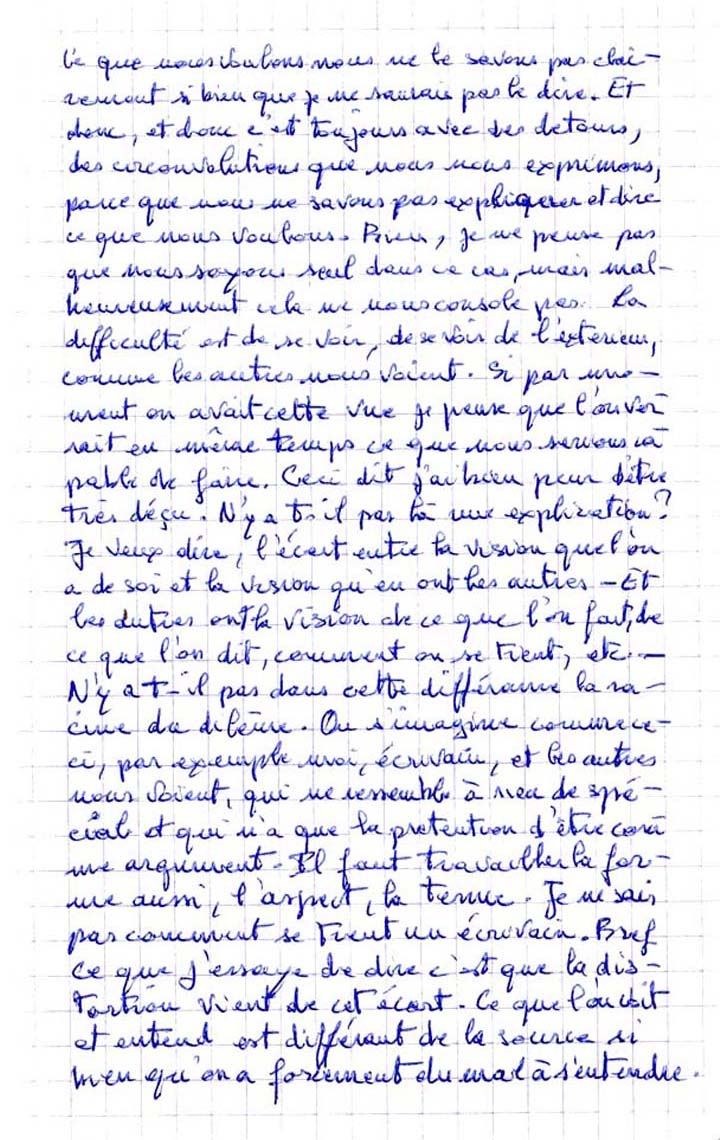 Ce que nous voulons nous ne le savons pas clai-
rement si bien que je ne saurais pas le dire. Et
donc, et donc c'est toujours avec des detours,
des circonvolutions que nous nous exprimons,
parce que nous ne savons pas expliquer et dire
ce que nous voulons. Bien, je ne pense pas
que nous soyons seul dans ce cas, mais mal-
heureusement cela ne nous console pas. La
difficulté est de se voir, de se voir de l'exterieur,
comme les autres nous voient. Si par mo-
ment on avait cette vue je pense que l'on ver
rait en même temps ce que nous serions ca
pable de faire. Ceci dit j'ai bien peur d'être
très déçu. N'y a t-il pas là une explication?
Je veux dire, l'écart entre la vision que l'on
a de soi et la vision qu'en ont les autres - Et
les autres ont la vision de ce que l'on fait, de
ce que l'on dit, comment on se tient, etc. -
N'y a t-il pas dans cette différance la ra-
cine du dilème. On s'imagine comme ce-
ci, par exemple moi, écrivain, et les autres
nous voient, qui ne ressemble à rien de spé-
cial et qui n'a que la pretention d'être com
me argument. Il faut travailler la for-
me aussi, l'aspect, la tenue. Je ne sais
pas comment se tient un écrivain. Bref
ce que j'essaye de dire c'est que la dis-
tortion vient de cet écart. Ce que l'on voit
et entend est différant de la source si
bien qu'on a forcément du mal à s'entendre.